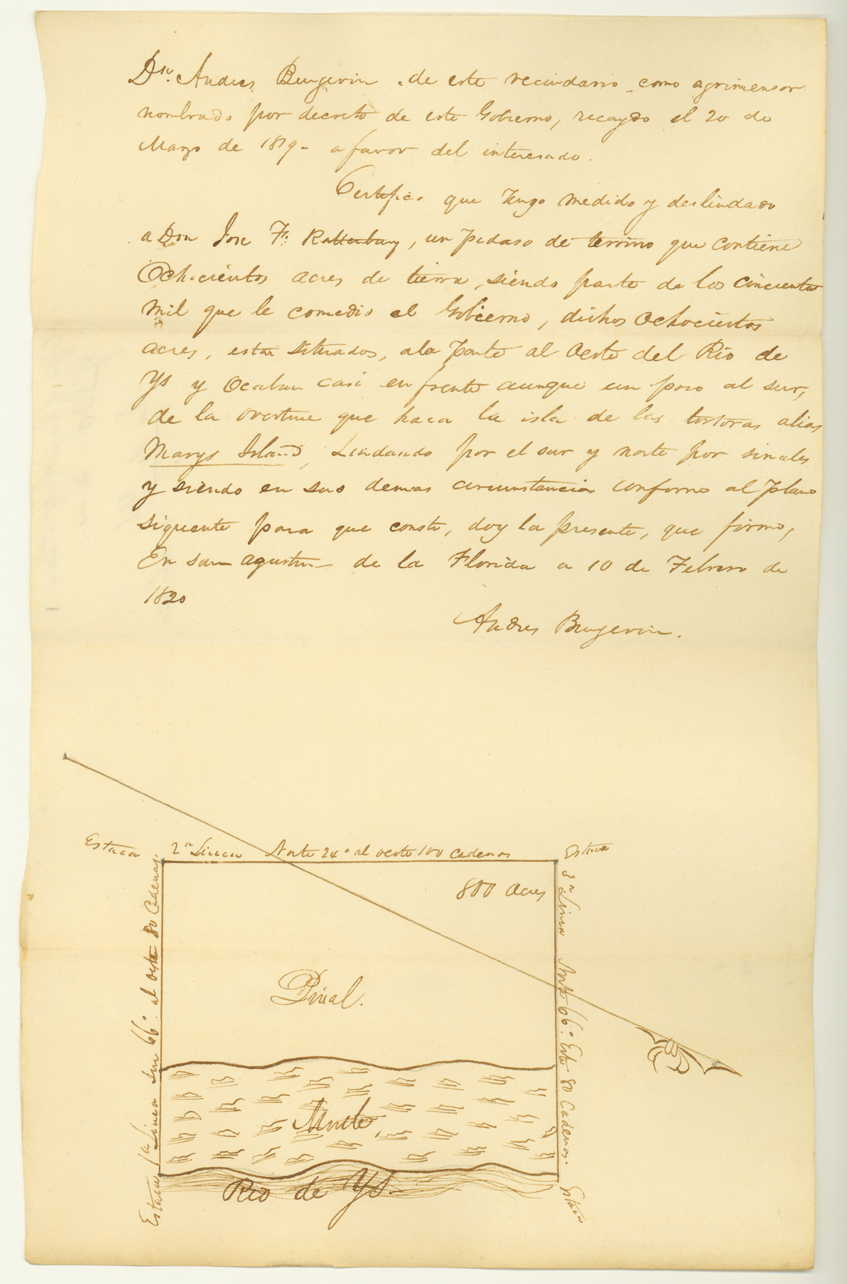 Dn. Andres Burgevin de este vecindario como agrimensor
nombrado por decreto de este Gobierno, recaydo el 20 de
Marzo de 1819 - a favor del interesado.
Certifico que tengo medido y deslindado
a Don Jose F: Rattenbury, un pedaso de terrino que contiene
Ochocientos acres de tierra, siendo parte de los cincuenta
mil que le comedio el Gobierno, dichos ochocientos
acres, estan situados, a la parte al Oeste del Rio de
Ys y casi en frente aunque un poco al sur,
de la que hace la isla de las tortoras alias
Marys Island, Lindando por el sur y norte por sinales
y siendo en sus demas circunstancia conforme al plano
siguente para que conste, doy la presente, que firmo,
En san agustin - de la Florida a 10 de Febrero de
1820
Andres Burgevin.
Estaca 2a Linea Norte 24° al oeste 100 Cadenas Estaca
800 Acres
1a Linea Sur 66° al oeste 80 Cadenas.
3a Linea Norte 66° Este 80 Cadenas.
Pinal.
Monte
Rio de Ys -
Estaca
Estaca